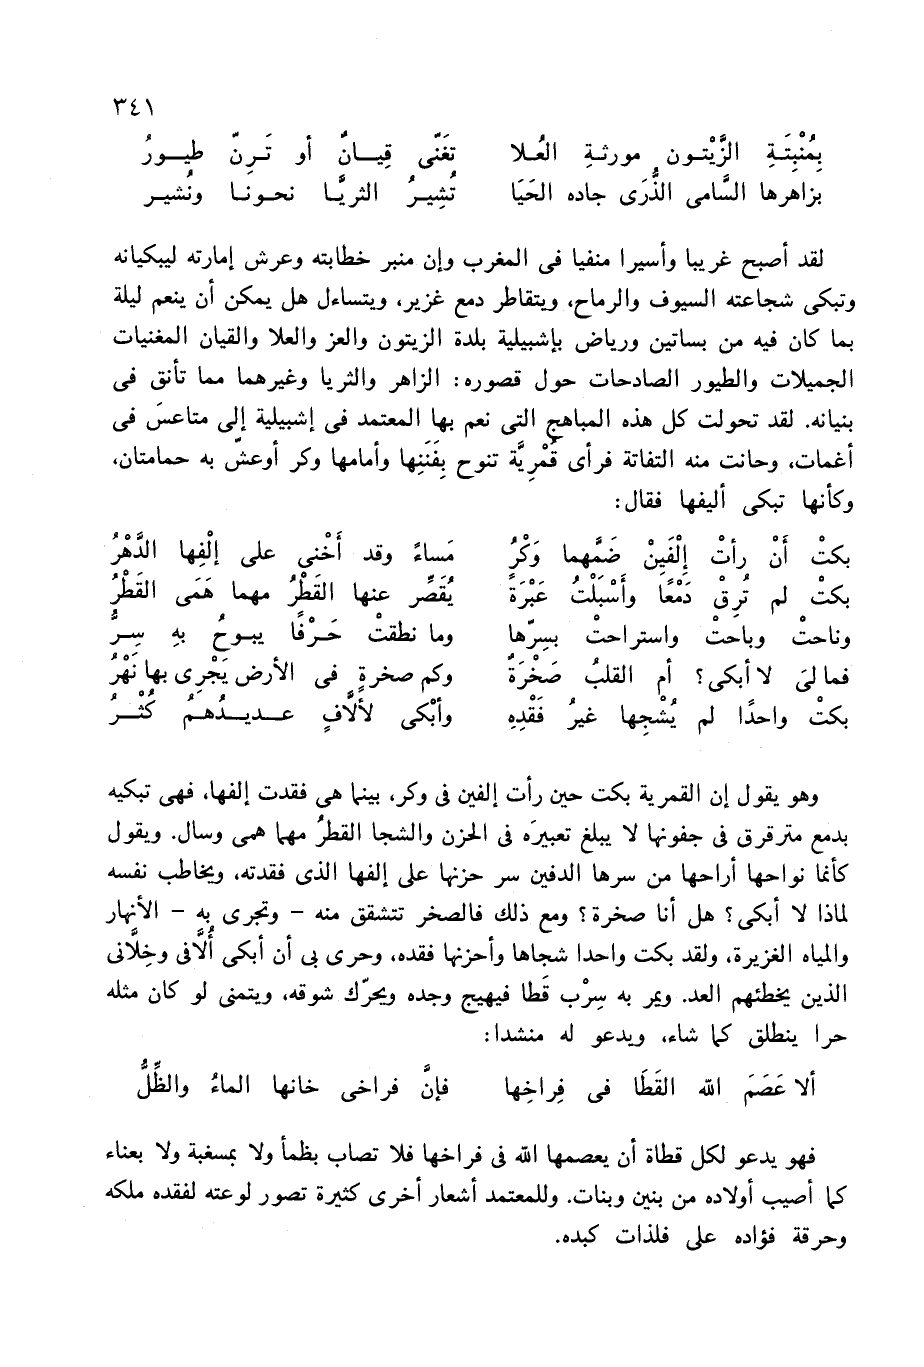 ٣٤١
بِمُنْبِتَةِ الزَّيْتون مورثةِ العُلا تغَنّى قِيــانٌ أو تَـرِنّ طيــورُ
بزاهرها السَّامى الذُّرَى جاده الحَيَا تُشِيـرُ الثريَّـا نحـونـا ونُشيـر
لقد أصبح غريبا وأسيرا منفيا فى المغرب وإن منبر خطابته وعرش إمارته ليبكيانه
وتبكى شجاعته السيوف والرماح، ويتقاطر دمع غزير، ويتساءل هل يمكن أن ينعم ليلة
بما كان فيه من بساتين ورياض بإشبيلية بلدة الزيتون والعز والعلا والقيان المغنيات
الجميلات والطيور الصادحات حول قصوره: الزاهر والثريا وغيرهما مما تأنق فى
بنيانه. لقد تحولت كل هذه المباهج التى نعم بها المعتمد فى إشبيلية إلى متاعسَ فى
أغمات، وحانت منه التفاتة فرأى قُمْرِيَّة تنوح بِفَنَنِها وأمامها وكر أوعسّ به حمامتان،
وكأنها تبكى أليفها فقال:
بكتْ أَنْ رأتْ إِلْفَينْ ضَمَّهما وَكْرُ مَساءً وقد أَخْنى على إلْفِها الدَّهْرُ
بكتْ لم تُرِقْ دَمْعًا وأَسْبَلْتُ عَبْرَةً يُقَصِّر عنها القَطْرُ مهما هَمَى القَطْرُ
وناحتْ وباحتْ واستراحتْ بسِرّها وما نطقتْ حَـرْفًا يبـوحُ بهِ سِـرُّ
فما لىَ لا أبكى؟ أم القلبُ صَخْرَةٌ وكم صخرةٍ فى الأرض يَجْرِى بها نَهْرُ
بكتْ واحدًا لم يُشْجِها غيرُ فَقْدِهِ وأبْكى لأُلَّافٍ عـديـدُهـمُ كُثْـرُ
وهو يقول إن القمرية بكت حين رأت إلفين فى وكر، بينما هى فقدت إلفها، فهى تبكيه
بدمع مترقرق فى جفونها لا يبلغ تعبيرَه فى الحزن والشجا القطرُ مهما همى وسال. ويقول
كأنما نواحها أراحها من سرها الدفين سر حزنها على إلفها الذى فقدته، ويخاطب نفسه
لماذا لا أبكى؟ هل أنا صخرة؟ ومع ذلك فالصخر تتشقق منه - وتجرى به - الأنهار
والمياه الغزيرة، ولقد بكت واحدا شجاها وأحزنها فقده، وحرى بى أن أبكى أُلَّافى وخِلَّانى
الذين يخطئهم العد. ويمر به سِرْب قَطا فيهيج وجده ويحرّك شوقه، ويتمنى لو كان مثله
حرا ينطلق كما شاء، ويدعو له منشدا:
ألا عَصَمَ الله القَطَا فى فِراخِها فإنَّ فراخى خانها الماءُ والظِّلُّ
فهو يدعو لكل قطاة أن يعصمها الله فى فراخها فلا تصاب بظمأ ولا بمسغبة ولا بعناء
كما أصيب أولاده من بنين وبنات. وللمعتمد أشعار أخرى كثيرة تصور لوعته لفقده ملكه
وحرقة فؤاده على فلذات كبده.